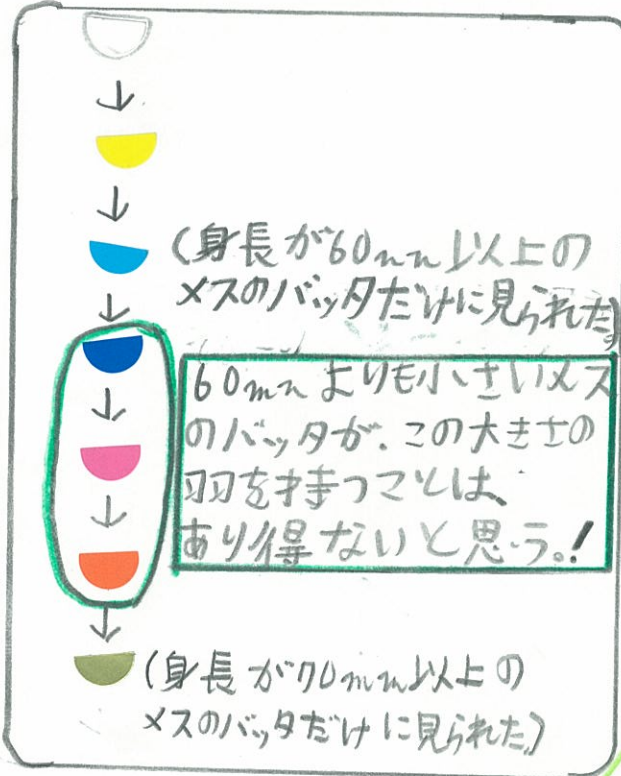 (身長が60mm以上の
メスのバッタだけに見られた)
60mmよりも小さいメス
のバッタが、この大きさの
羽を持つことは、
あり得ないと思う。!
(身長が70mm以上の
メスのバッタだけに見られた)